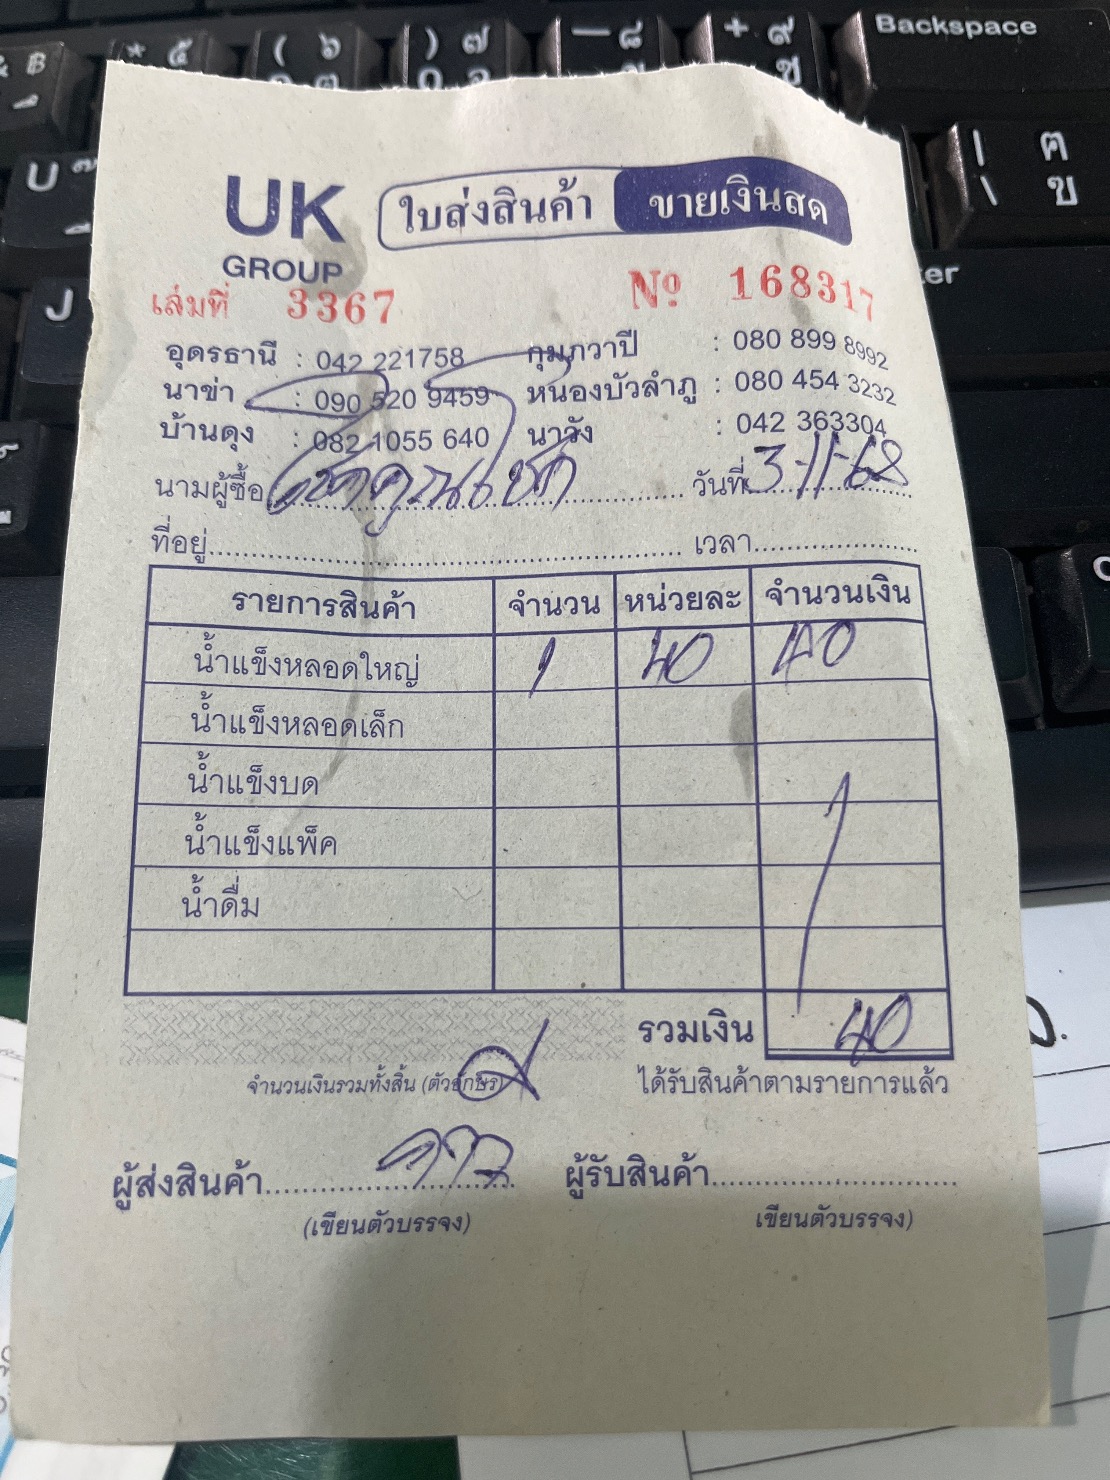 UK
GROUP
ใบส่งสินค้า ขายเงินสด
เล่มที่ 3367 Nº 168317
อุดรธานี : 042 221758 กุมภวาปี : 080 899 8992
นาข่า : 090 520 9459 หนองบัวลำภู : 080 454 3232
บ้านดุง : 082 1055 640 นาวัง : 042 363304
นามผู้ซื้อ วันที่ 3-11-68
ที่อยู่ เวลา
รายการสินค้า จำนวน หน่วยละ จำนวนเงิน
น้ำแข็งหลอดใหญ่ 1 40 40
น้ำแข็งหลอดเล็ก
น้ำแข็งบด
น้ำแข็งแพ็ค
น้ำดื่ม
รวมเงิน 40
จำนวนเงินรวมทั้งสิ้น (ตัวอักษร) ได้รับสินค้าตามรายการแล้ว
ผู้ส่งสินค้า ผู้รับสินค้า
(เขียนตัวบรรจง) เขียนตัวบรรจง)
Backspace